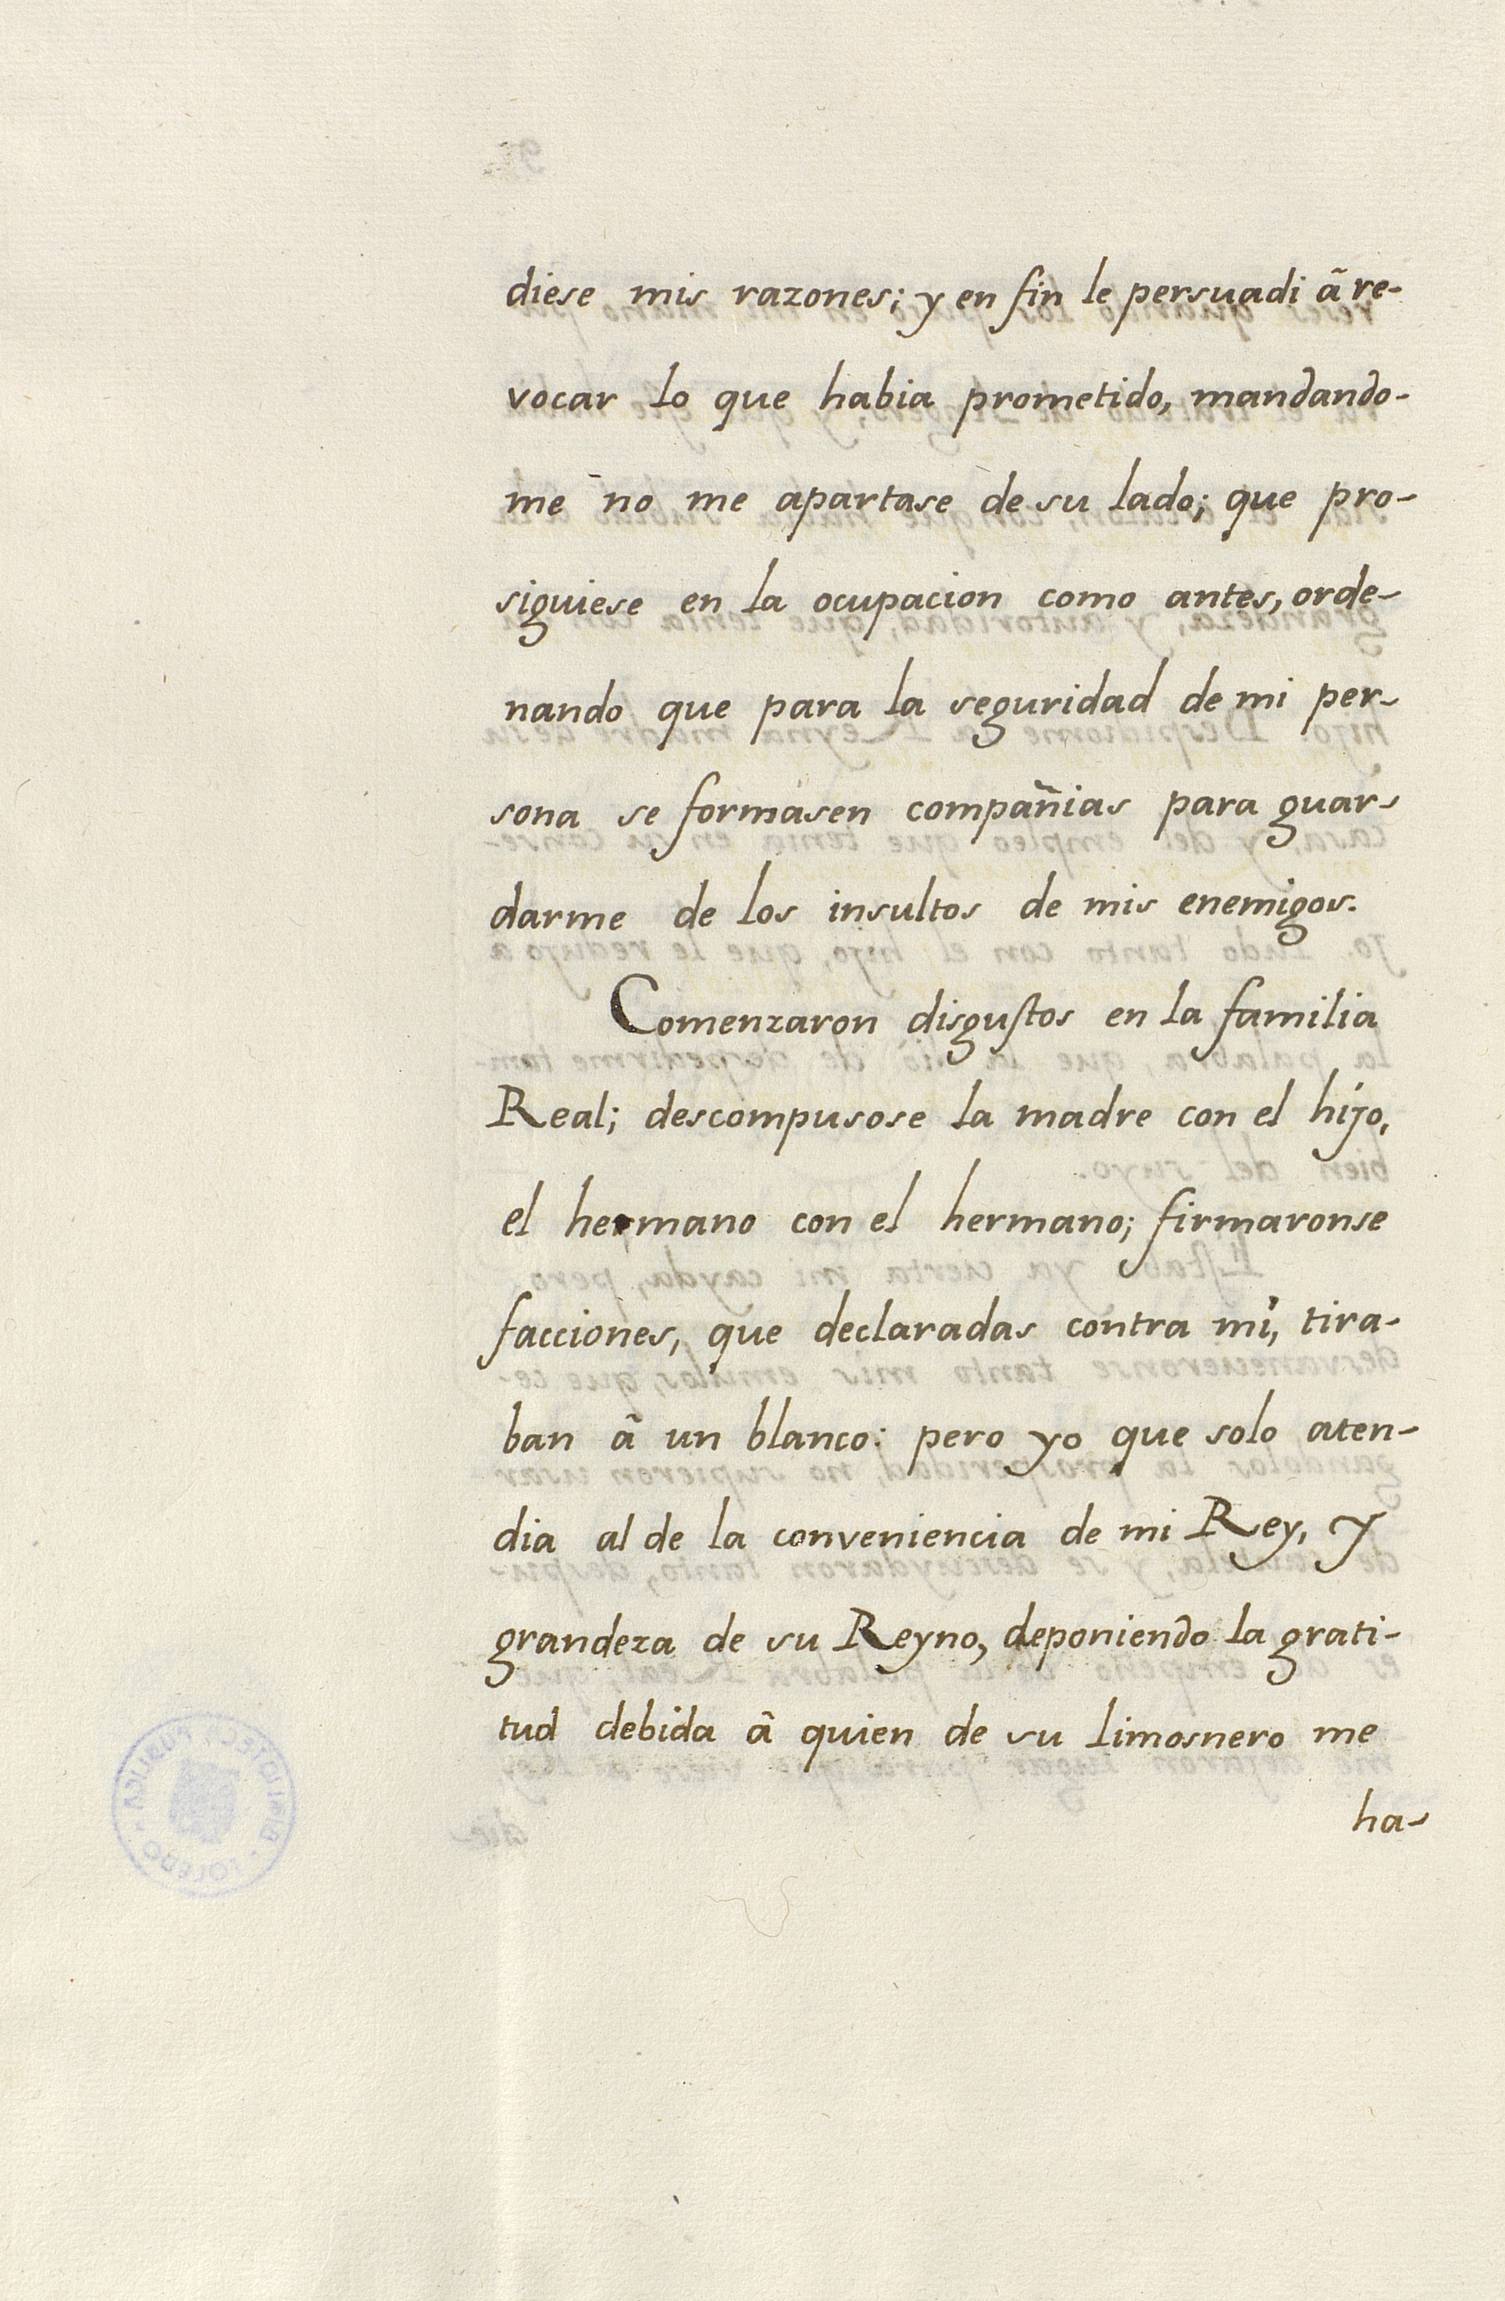 diese mis razones; y en fin le persuadi â re-
vocar lo que habia prometido, mandando-
me no me apartase de su lado; que pro-
siguiese en la ocupacion como antes, orde-
nando que para la seguridad de mi per-
sona se formasen compañias para guar-
darme de los insultos de mis enemigos.
Comenzaron disgustos en la familia
Real; descompusose la madre con el hijo,
el hermano con el hermano; firmaronse
facciones, que declaradas contra mi, tira-
ban â un blanco: pero yo que solo aten-
dia al de la conveniencia de mi Rey, y
grandeza de su Reyno, deponiendo la grati-
tud debida â quien de su limosnero me
ha-